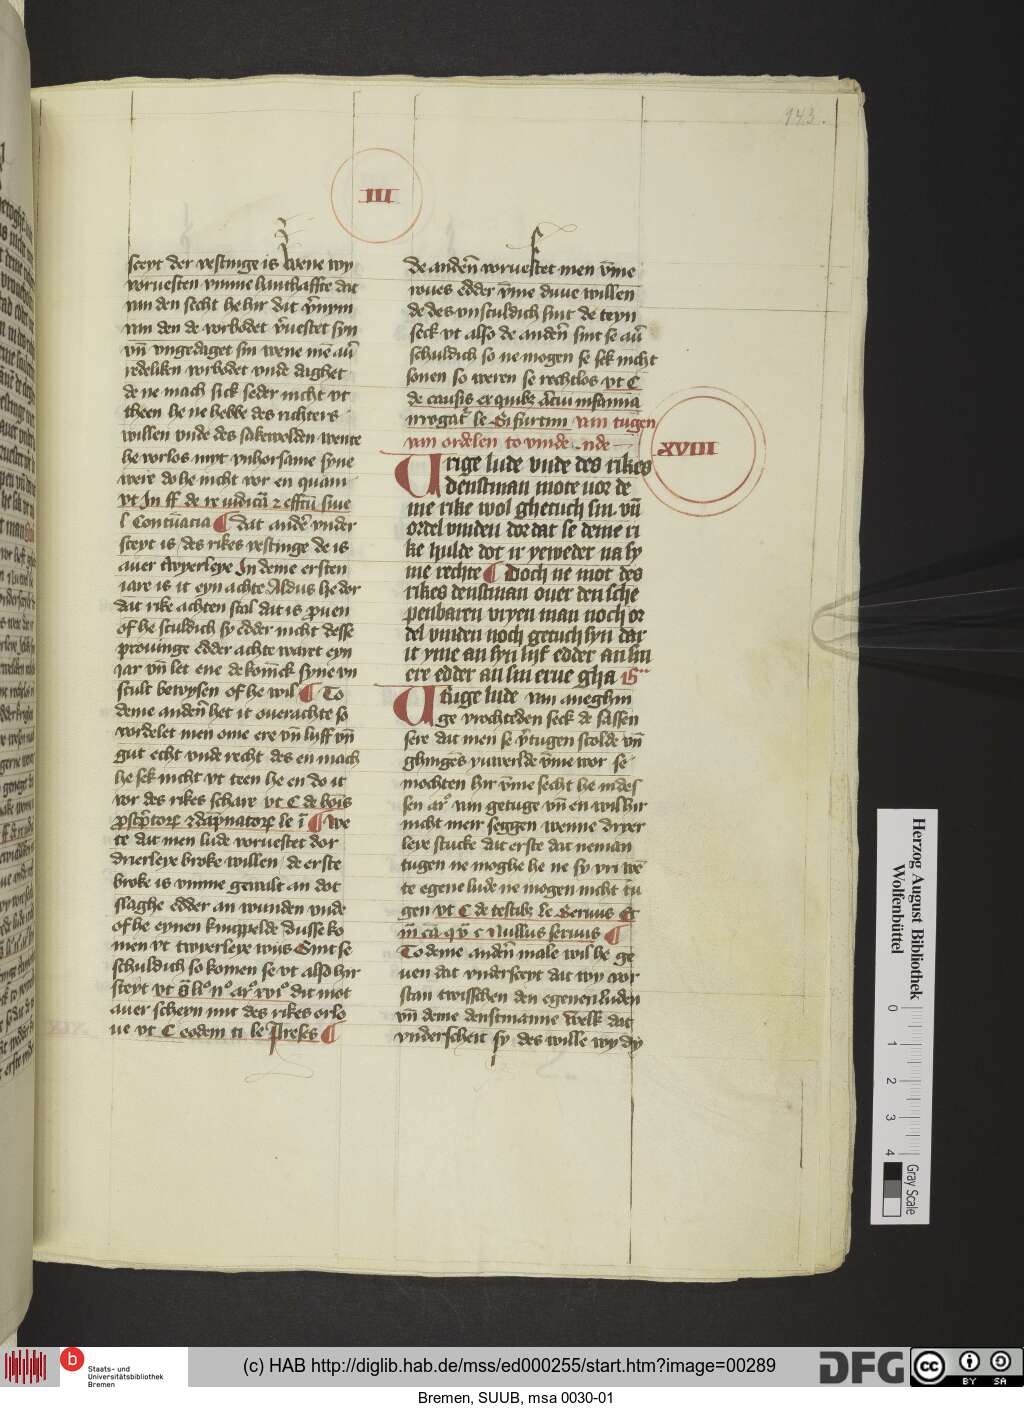 143.
III
steyt der vestinge is Wene wy
voruesten vmme hanthaffte dat
van den secht he hir dat v̄mym
van den de vorbodet v̄uestet syn
vn̄ vngedaget sin wene mē au᷑
redeliken vorbodet vnde daghet
de ne mach sick seder nicht vt
theen he ne hebbe des richters
willen vnde des sakewolden wente
he vorlos myt vnhorsame syne
were do he nicht vor en quam
vt In ff de re iudicā ⁊ effcū siue
l Contūacia ¶ dat ander vnder
steyt is des rikes vestinge de is
auer twyerleye In deme ersten
iare is it eyn achte Aldus he dor
dat rike achten scal dat is prouen
of he sculdich sy edder nicht desse
prouinge edder achte waret eyn
Jar vn̄ let ene dekomeck syne vn
scult bewysen of he wil ¶ To
deme anden̄ het it ouerachte so
vordelet men ome ere vn̄ lyff vn̄
gut echt vnde recht des en mach
he sek nicht vt teen he en do it
vor des rikes schare vt C de bois
pscptorꝝ ⁊ dapnatorꝝ le i ¶ We
te dat men lude voruestet dor
drierleye broke willen de erste
broke is vmme gewalt an dot
slaghe edder an wunden vnde
of he eynen knuppelde Dusse ko
men vt twyerleye wiis Sint se
schuldich so komen se vt also hir
steyt vt
auer scheyn mit des rikes orlo
ue vt C eodem ti le Preses ¶
de anden̄ voruestet men v̄me
roues edder v̄me duue willen
de des vnsculdich sint de teyn
seck vt also de anden̄ sint se au᷑
schuldich so ne mogen se sek nicht
sonen so weren se rechtlos vt C
de causis ex quibꝫ infamia
irrogat᷑ le Si furtim van tugen
van ordelen to vinde nde
XVIII
Vrige lude vnde des rikes
denstman mote uor de
me rike wol ghetuch sin vn̄
ordel vinden dor dat se deme ri
ke hulde dot ir yewedet na sy
me rechte ¶ Doch ne mot des
rikes denstman ouer den sche
penbaren vryen man noch or
del vinden noch getuch syn dar
it yme an syn lijf edder an sin
ere edder an sin erue gha
Vrige lude van aneghin
ge vrochteden seck de sassen
sere dat men se v̄tugen scolde vn̄
ghinges yuwerlde v̄me wor se
mochten hir v̄me secht he in des
sen ar᷑ van getuge vn̄ en wil hir
nicht meir seggen wenne dryer
leye stucke dat erste dat neman
tugen ne moghe he ne sy vri wē
te egene lude ne mogen nicht tu
gen vt C de testibꝫ le Seruus Et
Nullus seruus ¶
To deme anden̄ male wil he ge
uen dat vndersceyt dat wy vor
stan twisschen den egenen luden
vn̄ deme denstmanne Welk dat
vnderscheit sy des wille wy dy
Herzog August Bibliothek
Wolfenbüttel
0 1 2 3 4
Gray Scale
b Staats- und
Universitätsbibliothek
Bremen
(c) HAB http://diglib.hab.de/mss/ed000255/start.htm?image=00289
DFG
cc BY SA
Bremen, SUUB, msa 0030-01